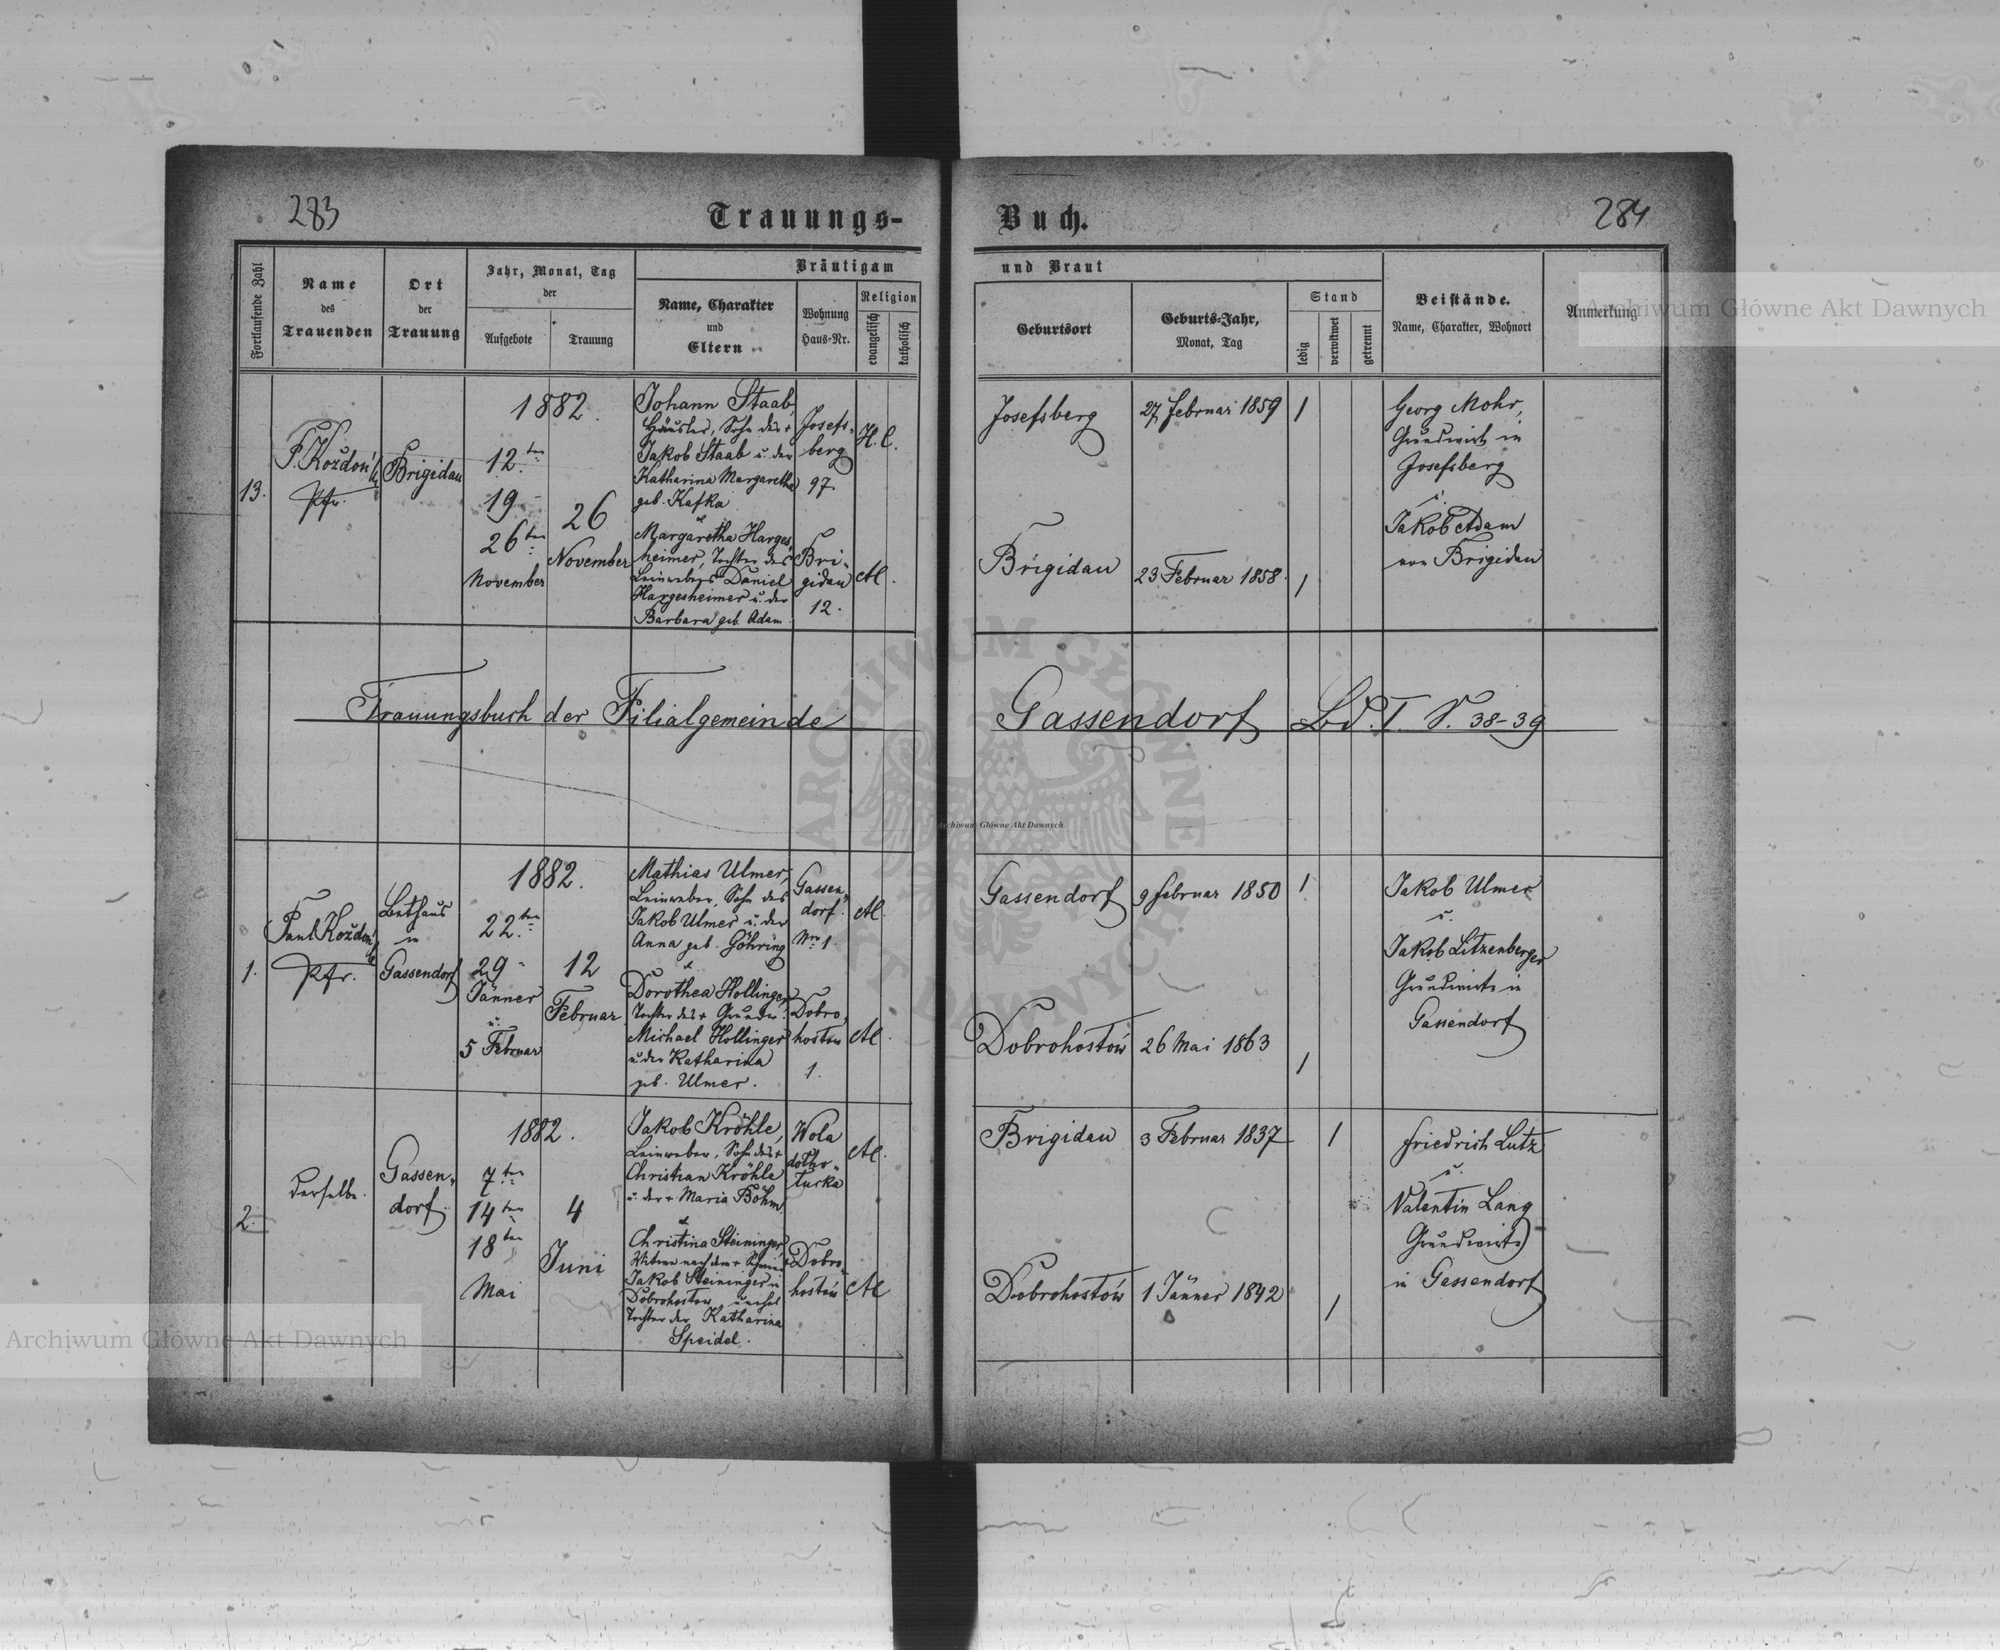 283
Trauungs-
Buch.
284
Fortlaufende Zahl
Name
des
Trauenden
Ort
der
Trauung
Jahr, Monat, Tag
der
Aufgebote
Trauung
Bräutigam
Name, Charakter
und
Eltern
Wohnung
Haus-Nr.
Religion
evangelisch
katholisch
und Braut
Geburtsort
Geburts-Jahr,
Monat, Tag
Stand
ledig
verwitwet
getrennt
Beistände.
Name, Charakter, Wohnort
Anmerkung
Archiwum Główne Akt Dawnych
13.
F. Kozdoń
Pfr.
Brigidau
1882.
12.ten
19 -
26ten
November
26
November
Johann Staab,
Häusler, Sohn des +
Jakob Staab u. der
Katharina Margaretha
geb. Kafka
&
Margaretha Harges
heimer, Tochter des
Leinwebers Daniel
Hargesheimer u. der
Barbara geb. Adam
Josefs-
berg
97.
Bri-
gidau
12.
H. C.
A.
Josefsberg
Brigidau
27 Februar 1859
23 Februar 1858.
1
1
Georg Mohr,
Grundwirth in
Josefsberg
u.
Jakob Adam
von Brigidau
Trauungsbuch der Filialgemeinde
Gassendorf Bd. I. S. 38-39
Archiwum Główne Akt Dawnych
1.
Paul Kozdoń
Pfr.
Bethaus
in
Gassendorf
1882.
22.ten
29 -
Jänner
u.
5 Februar
12
Februar
Mathias Ulmer,
Leinweber, Sohn des
Jakob Ulmer u. der
Anna geb. Göhring
&
Dorothea Hollinger
Tochter des +
Michael Hollinger
u. der Katharina
geb. Ulmer.
Gassen-
dorf.
Nro 1.
Dobro-
hostow
1.
A.
A.
Gassendorf
Dobrohostów
9 Februar 1850
26 Mai 1863
1
1
Jakob Ulmer
u.
Jakob Litzenberger
Grundwirte in
Gassendorf
2.
Derselbe.
Gassen-
dorf.
1882.
7ten
14ten
18ten
Mai
4
Juni
Jakob Kröhle,
Leinweber, Sohn des +
Christian Kröhle
u. der + Maria Böhm.
&
Christina Steininger,
Witwe nach dem + Schmied
Jakob Steininger in
Dobrohostow, unehel
Tochter der Katharina
Speidel.
Wola
dołho-
łucka
Dobro-
hostów
A.
A.
Brigidau
Dobrohostów
3 Februar 1837
1 Jänner 1842
1
1
Friedrich Lutz
u.
Valentin Lang
Grundwirte
in Gassendorf
Archiwum Główne Akt Dawnych
ARCHIWUM GŁÓWNE AKT DAWNYCH